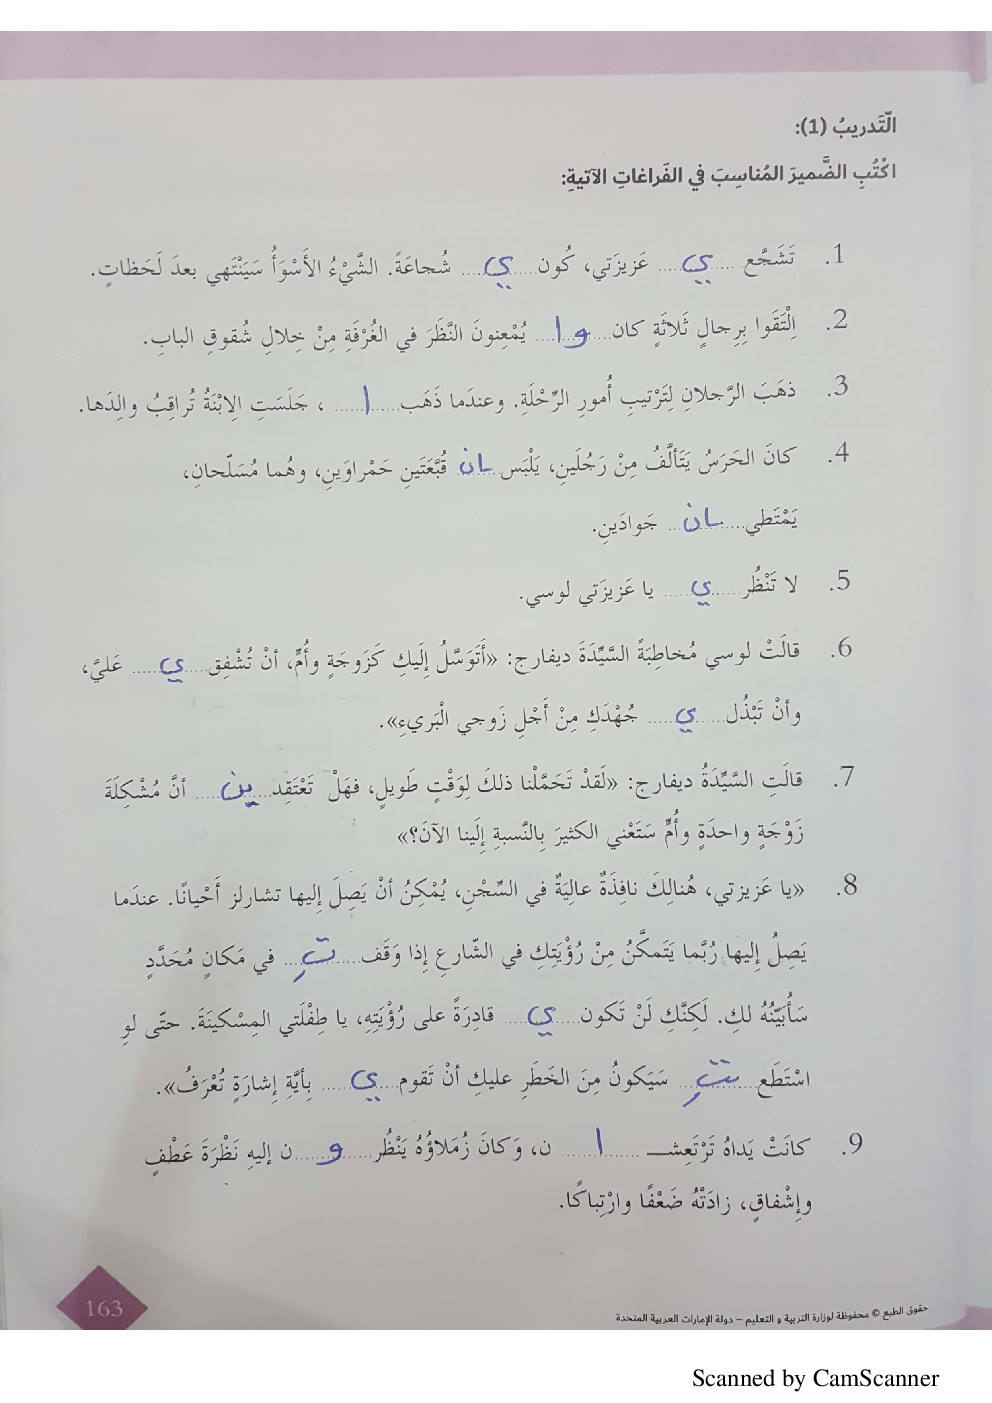 التَّدريبُ (1):
اكْتُبِ الضَّميرَ المُناسِبَ في الفَراغاتِ الآتيةِ:
1. تَشَجَّع ..ي.. عَزيزَتي، كُون ..ي.. شُجاعَةً. الشَّيْءُ الأَسْوَأُ سَيَنْتَهي بعدَ لَحَظاتٍ.
2. اِلْتَقَوا بِرِجالٍ ثَلاثَةٍ كان ..وا.. يُمْعِنونَ النَّظَرَ في الغُرْفَةِ مِنْ خِلالِ شُقوقِ البابِ.
3. ذهَبَ الرَّجلانِ لِتَرْتيبِ أُمورِ الرِّحْلَةِ. وعندَما ذَهَب ..ا.. ، جَلَسَتِ الِابْنَةُ تُراقِبُ والِدَها.
4. كانَ الحَرَسُ يَتَألَّفُ مِنْ رَجُلَينِ، يَلْبَس ..ان.. قُبَّعَتَينِ حَمْراوَينِ، وهُما مُسَلّحانِ،
يَمْتَطي ..ان.. جَوادَينِ.
5. لا تَنْظُر ..ي.. يا عَزيزَتي لوسي.
6. قالَتْ لوسي مُخاطِبَةً السَّيِّدَةَ ديفارج: «أَتَوَسَّلُ إلَيكِ كَزَوجَةٍ وأُمٍّ، أنْ تُشْفِق ..ي.. عَليَّ،
وأنْ تَبْذُل ..ي.. جُهْدَكِ مِنْ أَجْلِ زَوجي الْبَريءِ».
7. قالَتِ السَّيِّدَةُ ديفارج: «لَقدْ تَحَمَّلْنا ذلكَ لِوَقْتٍ طَويلٍ، فهَلْ تَعْتَقِد ..ين.. أنَّ مُشْكِلَةَ
زَوْجَةٍ واحدَةٍ وأُمٍّ سَتَعْني الكثيرَ بِالنَّسبةِ إلَينا الآنَ؟»
8. «يا عَزيزتي، هُنالِكَ نافِذَةٌ عاليَةٌ في السِّجْنِ، يُمْكِنُ أنْ يَصِلَ إليها تشارلز أَحْيانًا. عندَما
يَصِلُ إليها رُبَّما يَتَمكَّنُ مِنْ رُؤْيَتِكِ في الشّارعِ إذا وَقَف ..تِ.. في مَكانٍ مُحَدَّدٍ
سَأُبَيّنُهُ لكِ. لَكِنَّكِ لَنْ تَكون ..ي.. قادِرَةً على رُؤْيَتِهِ، يا طِفْلَتي المِسْكينَةَ. حتّى لو
اسْتَطَع ..تِ.. سَيَكونُ مِنَ الخَطَرِ عليكِ أنْ تَقوم ..ي.. بِأيَّةِ إشارَةٍ تُعْرَفُ».
9. كانَتْ يَداهُ تَرْتَعِشـ ..ا.. نِ، وَكانَ زُمَلاؤُهُ يَنْظُر ..و.. ن إليهِ نَظْرَةَ عَطْفٍ
وإِشْفاقٍ، زادَتْهُ ضَعْفًا وارْتِباكًا.
163
حقوق الطبع © محفوظة لوزارة التربية و التعليم – دولة الإمارات العربية المتحدة
Scanned by CamScanner